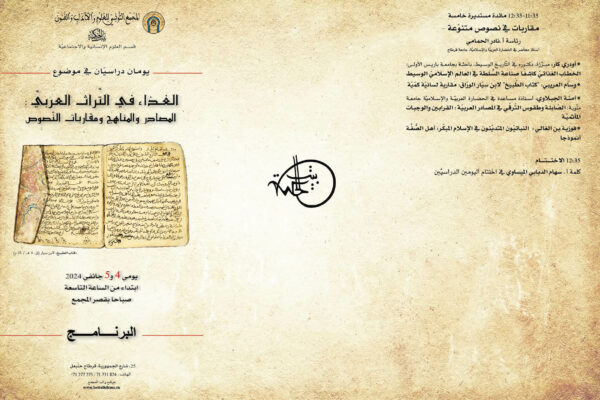 المجمع التونسي للعلوم والآداب والفنون
بيت الحكمة
قسم العلوم الإنسانية والاجتماعية
يومان دراسيان في موضوع
الغذاء في التّراث العربيّ :
المصادر والمناهج ومقاربات النّصوص
يومي 4 و5 جانفي 2024
ابتداء من الساعة التاسعة
صباحا بقصر المجمع
البرنامــج
25، شارع الجمهورية، قرطاج حنبعل
بيت الحكمة
11:35-12:35 مائدة مستديرة خامسة
مقاربات في نصوص متنوّعة -
رئاسة أ. نادر الحمامي
أستاذ محاضر في الحضارة العربية والإسلامية، جامعة قرطاج
• أودري كار، مبرّزة، دكتوره في التّاريخ الوسيط، باحثة بجامعة باريس الأولى:
الخطاب الغذائيّ كاشفا صناعة السّلطة في العالم الإسلاميّ الوسيط
• وسام العريبي، "كتاب الطّبيخ" لابن سيّار الورّاق، مقاربة لسانية كميّة
• آمنة الجبلاوي، أستاذة مساعدة في الحضارة العربيّة والإسلاميّة جامعة
منّوبة: الضّابلة وطقوس التّرقّي في المصادر العربية: القرابين والوجبات
• فوزية بن الغالي - النباتيّون المتديّنون في الإسلام المبكر: أهل الصّفّة
أنموذجا
12:35 الاختــتــام
كلمة أ. سهام الدبابي الميساوي في اختتام اليومين الدراسيّين